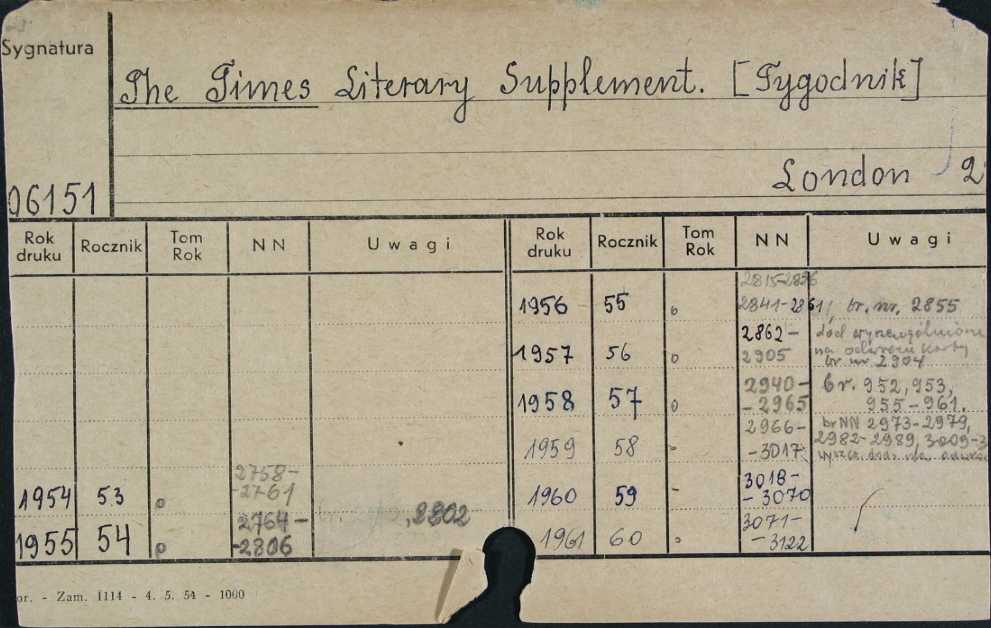 Sygnatura
The Times Literary Supplement. [Tygodnik]
London 2
06151
Rok druku Rocznik Tom Rok NN Uwagi
1954 53 o 2758-2761
1955 54 o 2764-2806 ,2802
Rok druku Rocznik Tom Rok NN Uwagi
2815-2836
1956 55 o 2841-2861/, br. nr. 2855
2862-
1957 56 o 2905 na odwrocie karty
br nr 2904
1958 57 o 2940-2965 br. 952, 953,
955-961.
1959 58 - 2966-3017 br NN 2973-2979,
2982-2989, 3009-3
1960 59 - 3018-3070
1961 60 o 3071-3122
or. - Zam. 1114 - 4. 5. 54 - 1000